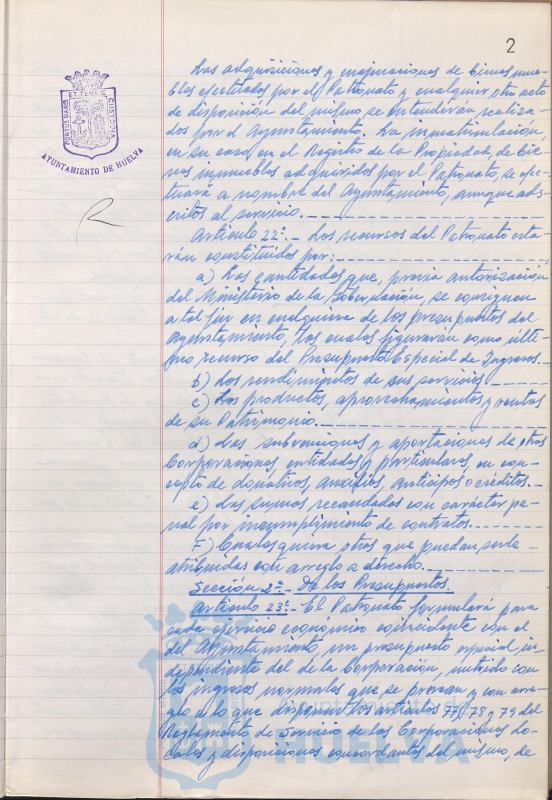 2
PORTUS MARIS ET TERRAE CUSTODIA
AYUNTAMIENTO DE HUELVA
Las adquisiciones y enajenaciones de bienes inmue-
bles efectuados por el Patronato y cualquier otro acto
de disposición del mismo se entenderán realiza-
dos por el Ayuntamiento. La inmatriculación,
en su caso, en el Registro de la Propiedad, de bie-
nes inmuebles adquiridos por el Patronato, se efec-
tuará a nombre del Ayuntamiento, aunque ads-
critos al servicio.
Artículo 22º.- Los recursos del Patronato esta-
rán constituidos por:
a) Las cantidades que, previa autorización
del Ministerio de la Gobernación, se consignen
a tal fin en cualquiera de los presupuestos del
Ayuntamiento, los cuales figurarán como últi-
mo recurso del Presupuesto Especial de Ingresos.
b) Los rendimientos de sus servicios
c) Los productos, aprovechamientos y rentas
de su Patrimonio.
d) Las subvenciones y aportaciones de otras
Corporaciones, entidades y particulares, en con-
cepto de donativos, auxilios, anticipos o créditos.
e) Las sumas recaudadas con carácter pe-
nal por incumplimiento de contratos.
F) Cualesquiera otros que puedan serle
atribuidas con arreglo a derecho.
Sección 2ª.- De los Presupuestos.
Artículo 23º.- El Patronato formulará para
cada ejercicio económico coincidente con el
del Ayuntamiento, un presupuesto especial in-
dependiente del de la Corporación, nutrido con
los ingresos normales que se prevean y con arre-
glo a lo que disponen los artículos 77, 78 y 79 del
Reglamento de Servicio de las Corporaciones Lo-
cales y disposiciones concordantes del mismo, de
HUELVA